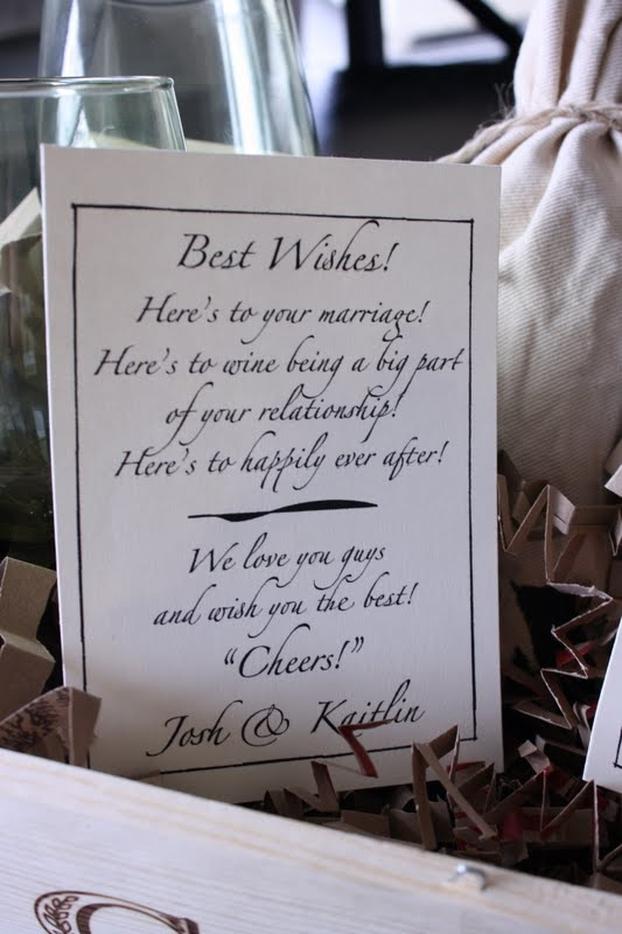 Best Wishes!
Here's to your marriage!
Here's to wine being a big part
of your relationship!
Here's to happily ever after!
We love you guys
and wish you the best!
“Cheers!”
Josh & Kaitlin